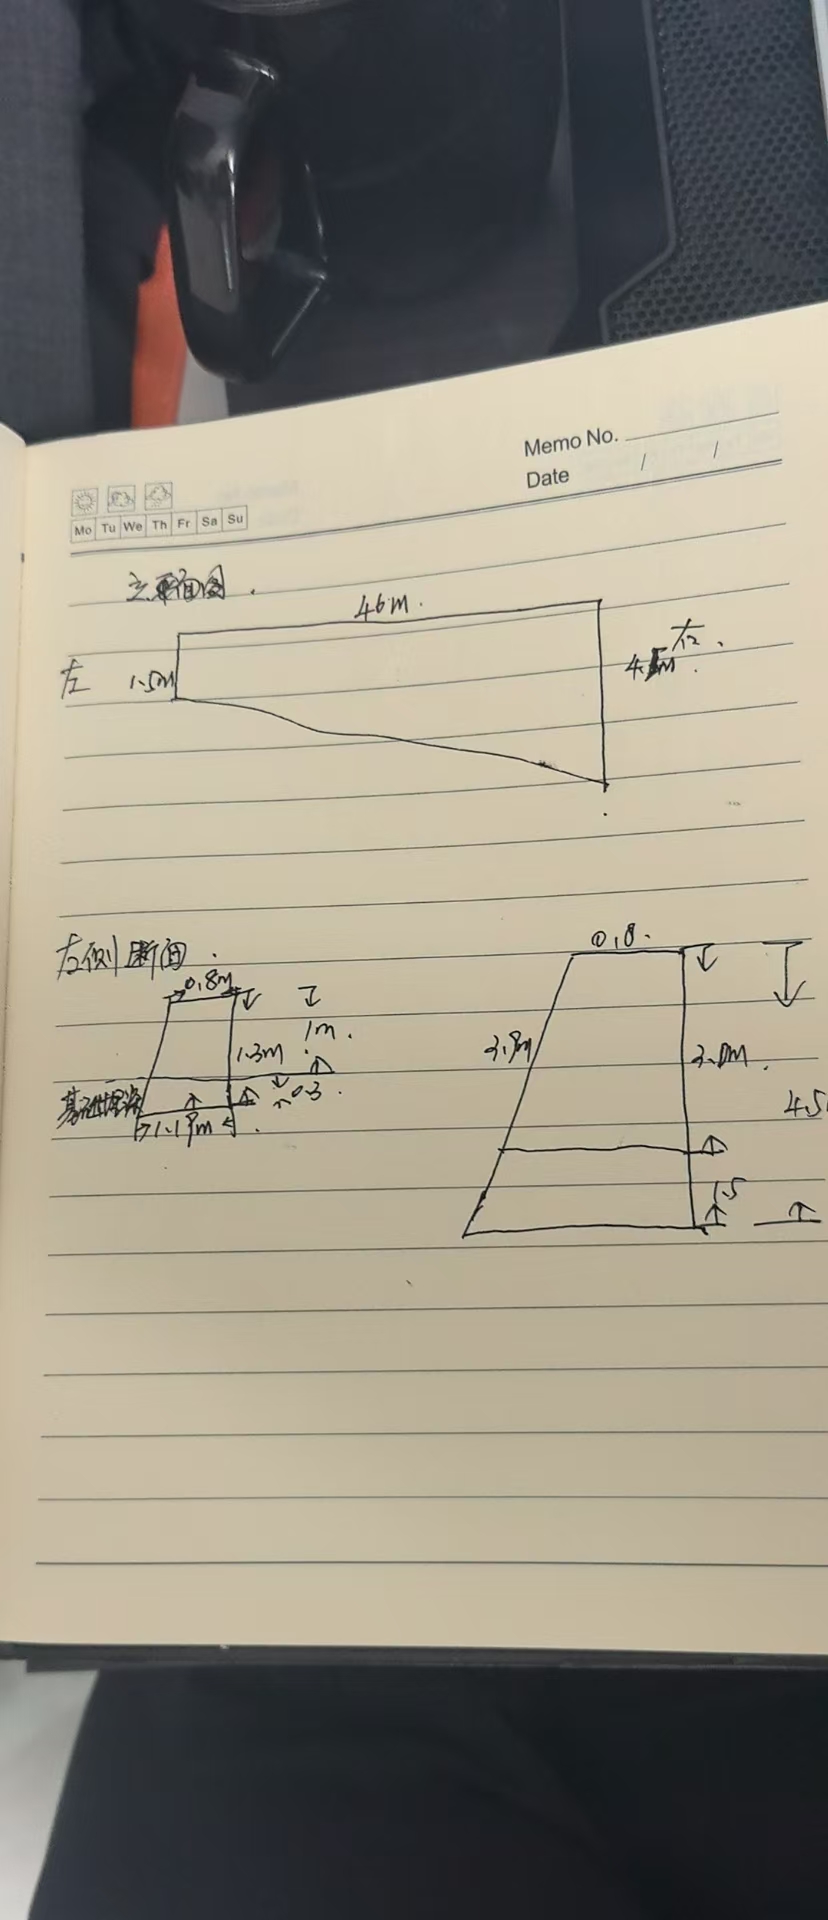 Memo No.
Date / /
Mo Tu We Th Fr Sa Su
立面图.
46m.
左 1.5m
右.
左侧断面.
0.8m
1m.
1.3m
0.3.
基础埋深
1.19m
0.8.
1.5